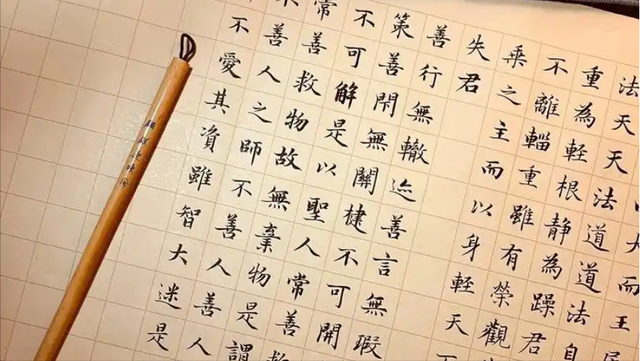 大而王居
法天天法道道法自
重為輕根静為躁君
不離輜重雖有榮觀
乘之主而以身輕天下
失君
善行無轍迹善言無瑕
策善閇無關楗不可開
不可解是以聖人常善救
常善救物故無棄物是謂
善人之師不善人善人
不愛其資雖智大迷是